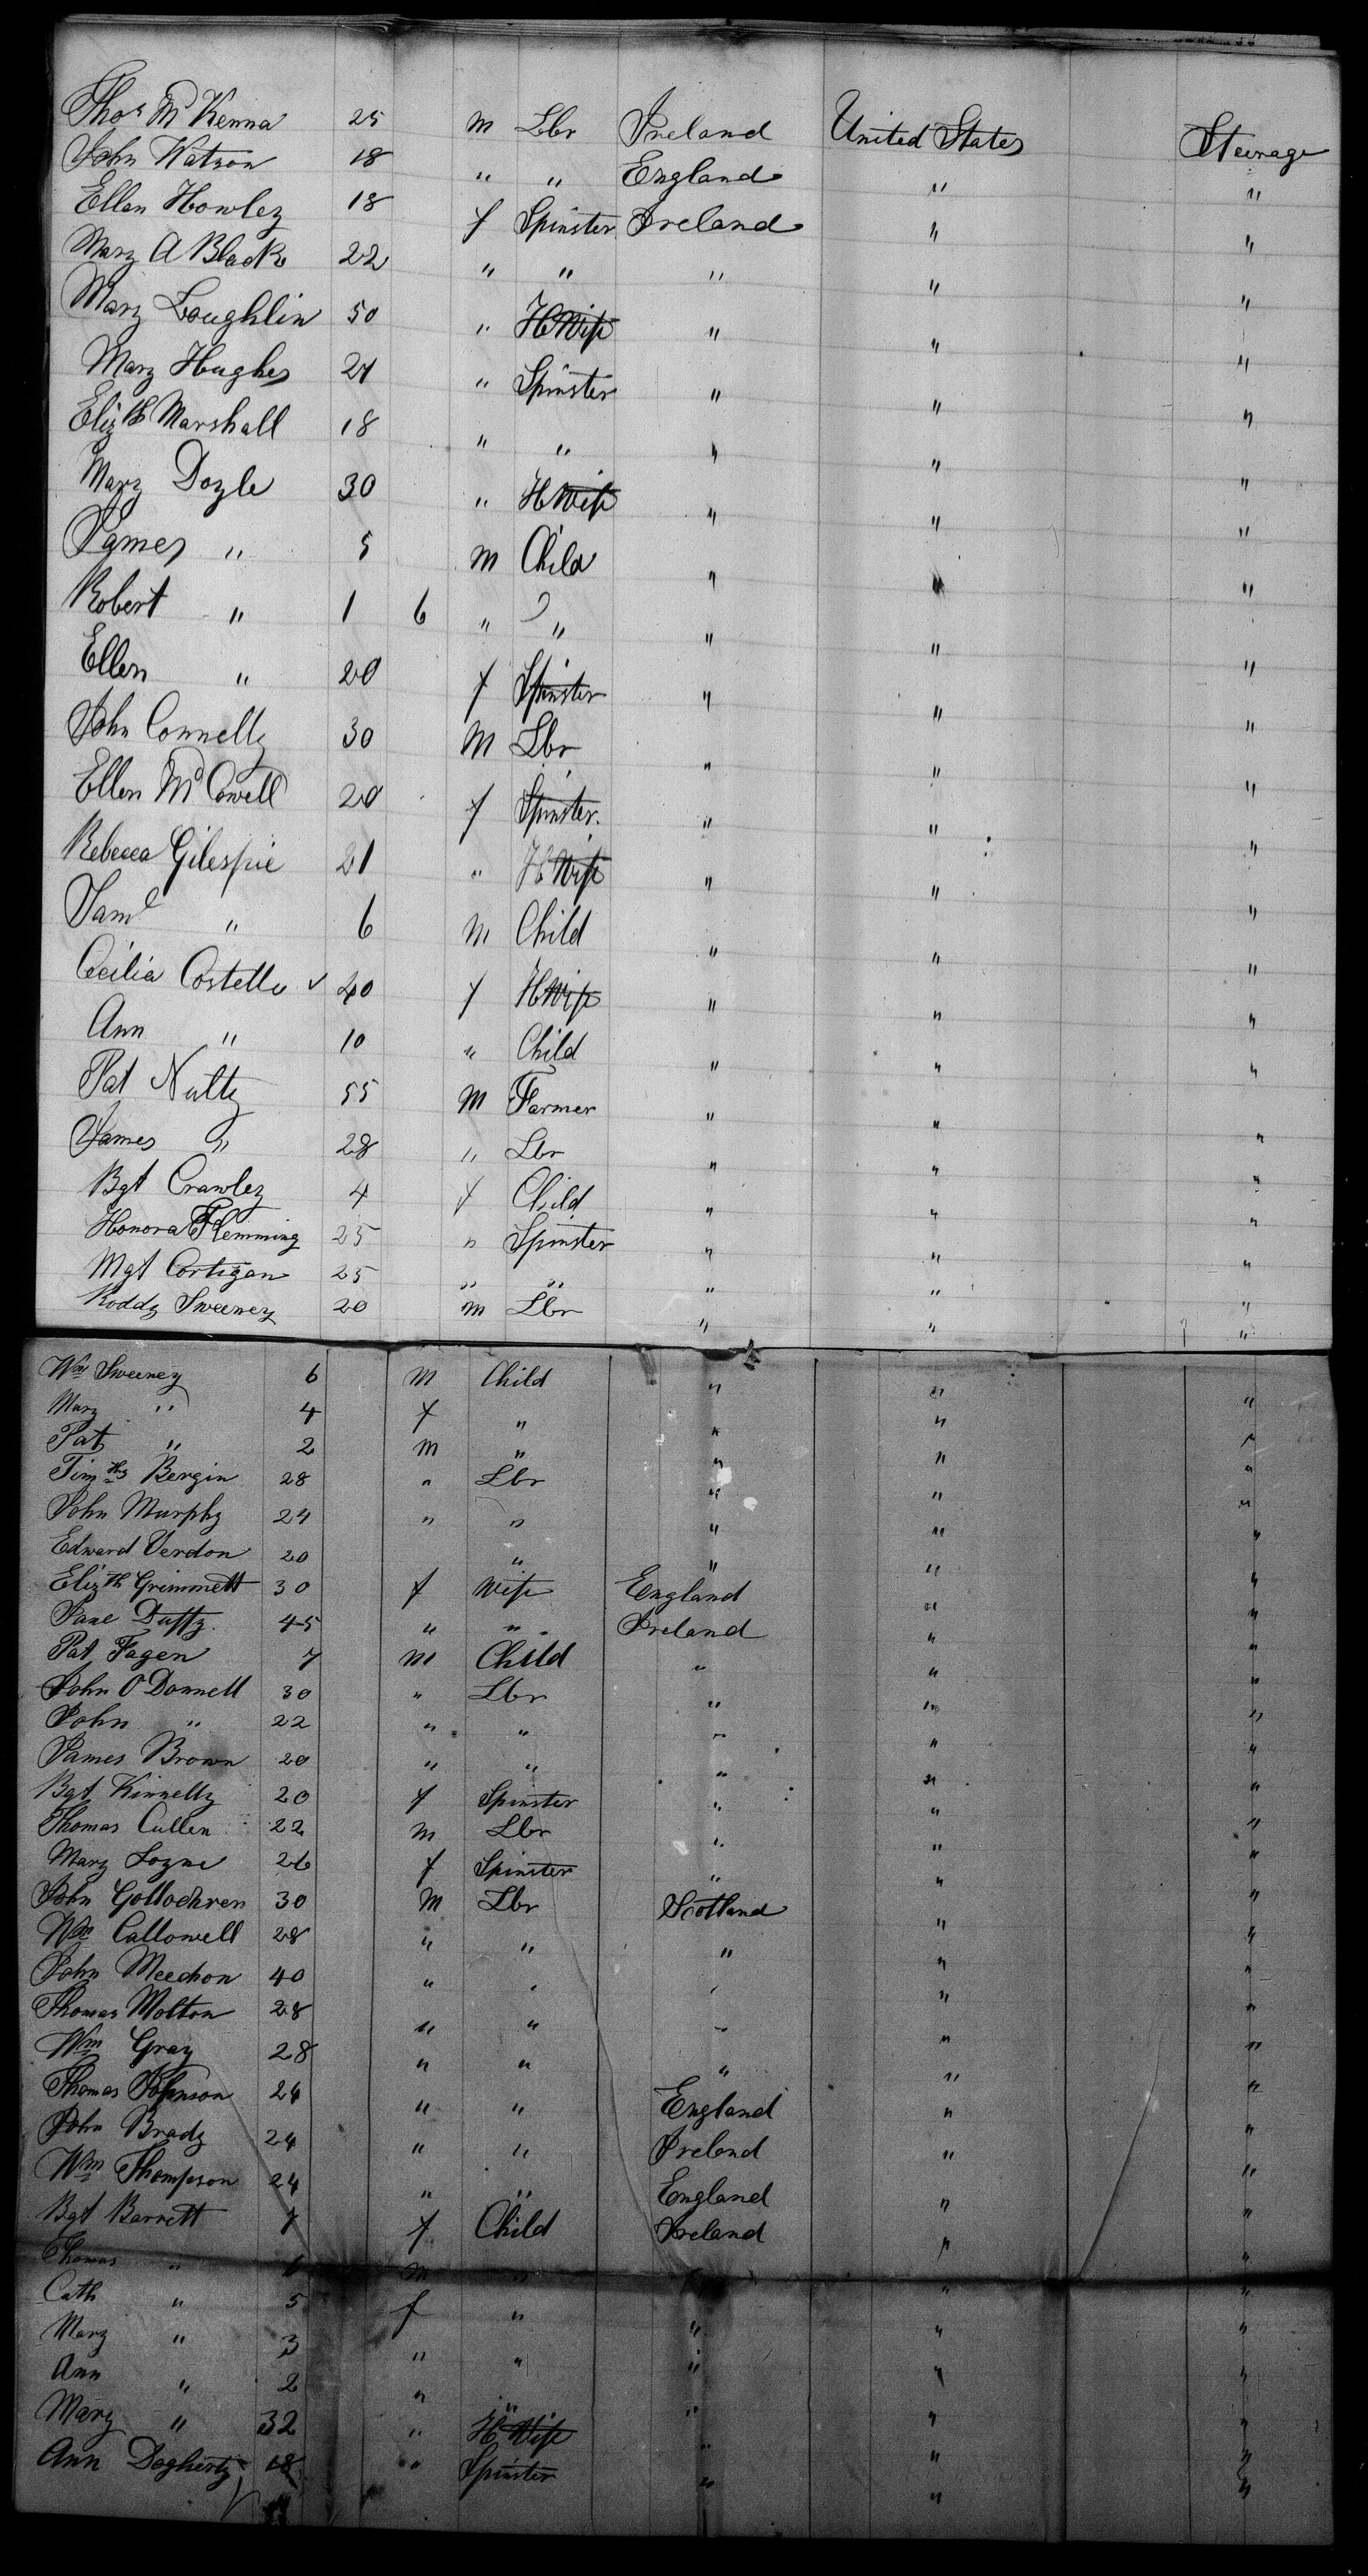 Thos McKenna 25 m Lbr Ireland United States Steerage
John Watson 18 " " England " "
Ellen Howley 18 f Spinster Ireland " "
Mary A Black 22 " " " " "
Mary Loughlin 50 " H Wife " " "
Mary Hughes 24 " Spinster " " "
Elizth Marshall 18 " " " " "
Mary Doyle 30 " H Wife " " "
James " 5 m Child " " "
Robert " 1 6 " " " " "
Ellen " 20 f Spinster " " "
John Connelly 30 m Lbr " " "
Ellen McCowell 20 f Spinster. " " "
Rebecca Gilespie 21 " H Wife " " "
Saml " 6 m Child " " "
Cecilia Costello 40 f H Wife " " "
Ann " 10 " Child " " "
Pat Nulty 55 m Farmer " " "
James " 28 " Lbr " " "
Bgt Crawley 4 f Child " " "
Honora Flemming 25 " Spinster " " "
Mgt Cortigan 25 " " " " "
Roddy Sweeney 20 m Lbr " " "
Wm Sweeney 6 m Child " " "
Mary " 4 f " " " "
Pat " 2 m " " " "
Timthy Bergin 28 " Lbr " " "
John Murphy 24 " " " " "
Edward Verdon 20 " " " "
Elizth Grimmett 30 f Wife England " "
Jane Duffy. 45 " " Ireland " "
Pat Fagen 7 m Child " " "
John O'Donnell 30 " Lbr " " "
John " 22 " " " " "
James Brown 20 " " " " "
Bgt Kinnelly 20 f Spinster " " "
Thomas Cullen 22 m Lbr " " "
Mary Logne 26 f Spinster " " "
John Gollochren 30 m Lbr Scotland " "
Wm Callowell 28 " " " " "
John Meechon 40 " " " " "
Thomas Molton 28 " " " " "
Wm Gray 28 " " " " "
Thomas Johnson 24 " " England " "
John Brady 24 " " Ireland " "
Wm Thompson 24 " " England " "
Bgt Barrett 7 f Child Ireland " "
Thomas " 6 m " " " "
Cath " 5 f " " " "
Mary " 3 " " " " "
Ann " 2 " " " " "
Mary " 32 " H Wife " " "
Ann Dogherty 18 " Spinster " " "